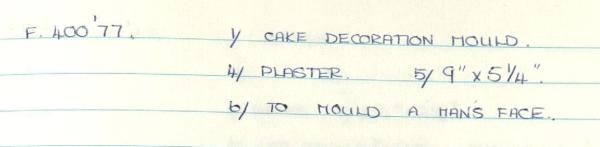 F. 400'77. 1/ CAKE DECORATION MOULD.
4/ PLASTER. 5/ 9" x 5 1/4".
6/ TO MOULD A MAN'S FACE.